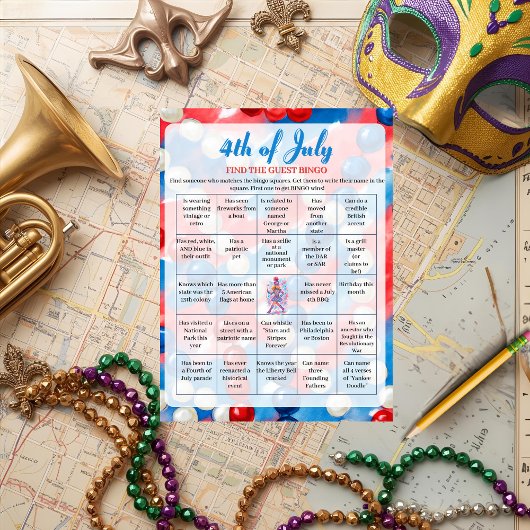 4th of July
FIND THE GUEST BINGO
Find someone who matches the bingo squares. Get them to write their name in the
square. First one to get BINGO wins!
Is wearing something vintage or retro
Has seen fireworks from a boat
Is related to someone named George or Martha
Has moved from another state
Can do a credible British accent
Has red, white, AND blue in their outfit
Has a patriotic pet
Has a selfie at a national monument or park
Is a member of the DAR or SAR
Is a grill master (or claims to be)
Knows which state was the 13th colony
Has more than 5 American flags at home
Has never missed a July 4th BBQ
Birthday this month
Has visited a National Park this year
Lives on a street with a patriotic name
Can whistle "Stars and Stripes Forever"
Has been to Philadelphia or Boston
Has an ancestor who fought in the Revolutionary War
Has been to a Fourth of July parade
Has ever reenacted a historical event
Knows the year the Liberty Bell cracked
Can name three Founding Fathers
Can name all 4 verses of "Yankee Doodle"